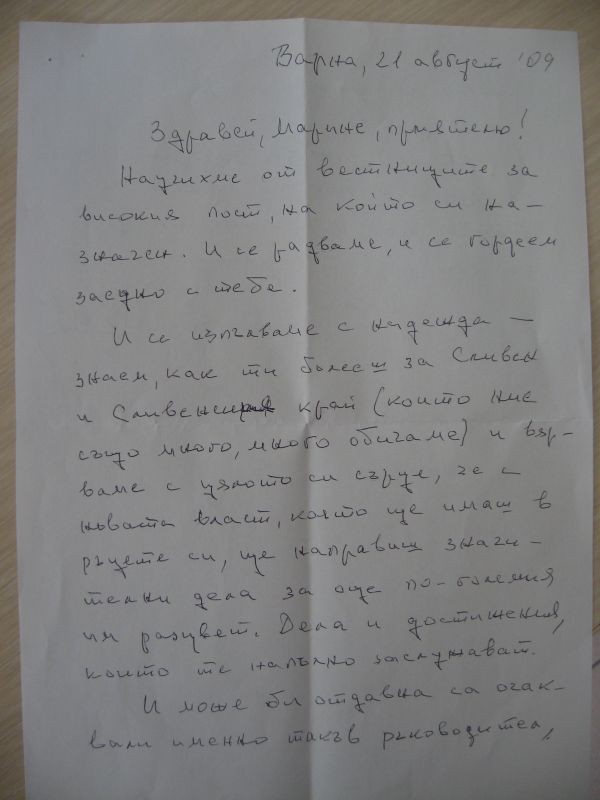 Варна, 21 август '09
Здравей, Марине, приятелю!
Научихме от вестниците за
високия пост, на който си на-
значен. И се радваме, и се гордеем
заедно с тебе.
И се изпълваме с надежда –
знаем, как ти болееш за Сливен
и Сливенския край (които ние
също много, много обичаме) и вяр-
ваме с цялото си сърце, че с
новата власт, която ще имаш в
ръцете си, ще направиш значи-
телни дела за още по-големия
им разцвет. Дела и достижения,
които те напълно заслужават.
И може би отдавна са очак-
вали именно такъв ръководител,